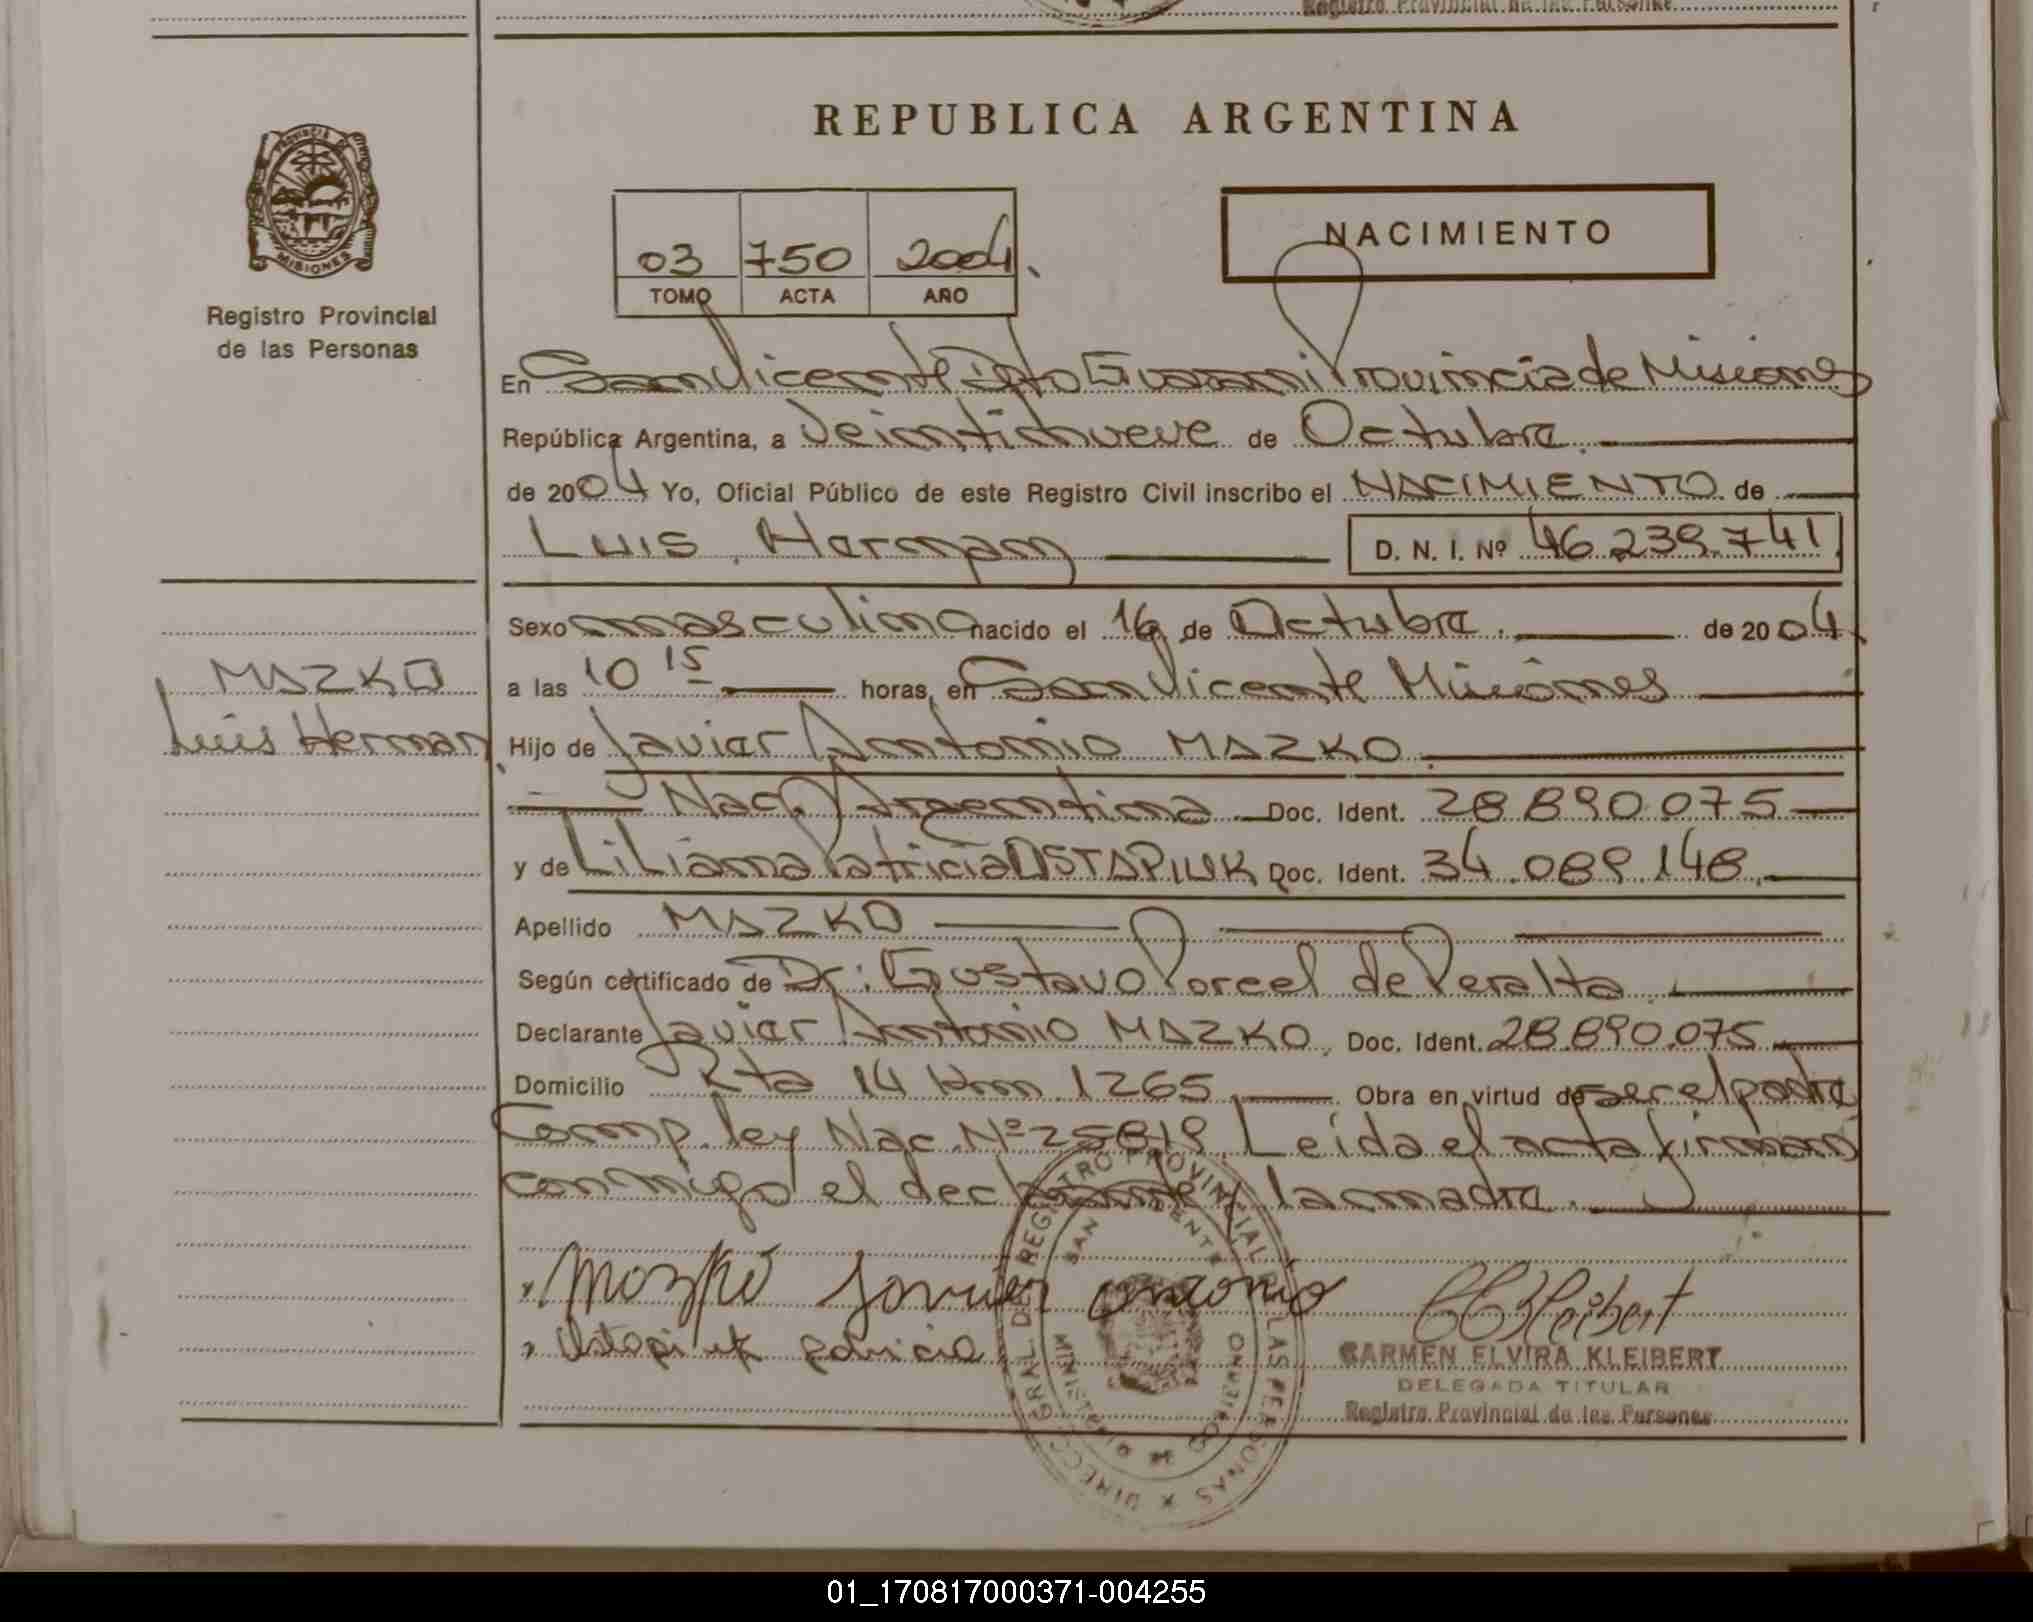 Registro Provincial de las Personas
REPUBLICA ARGENTINA
PROVINCIA DE
MISIONES
Registro Provincial
de las Personas
03 750 2004
TOMO ACTA AÑO
NACIMIENTO
En San Vicente Dpto Guarani Provincia de Misiones
República Argentina, a Veintinueve de Octubre.
de 2004 Yo, Oficial Público de este Registro Civil inscribo el NACIMIENTO de
Luis Herman D. N. I. Nº 46.239.741
Sexo masculino nacido el 16 de Octubre. de 2004
MAZKO
Luis Herman
a las 10 15 horas, en San Vicente Misiones
Hijo de Javier Antonio MAZKO.
Nac. Argentina Doc. Ident. 28.890.075
y de Liliana Patricia OSTAPIUK Doc. Ident. 34.089.148
Apellido MAZKO
Según certificado de Dr: Gustavo Porcel de Peralta
Declarante Javier Antonio MAZKO, Doc. Ident. 28.890.075
Domicilio Rta 14 Km 1265 Obra en virtud de ser el padre
Comp. ley Nac. Nº 25819. Leída el acta firman
conmigo el declarante y la madre.
Mozko Javier Antonio
Ostapiuk patricia
CEKleibert
CARMEN ELVIRA KLEIBERT
DELEGADA TITULAR
Registro Provincial de las Personas
DIRECC. GRAL. DEL REGISTRO PROVINCIAL DE LAS PERSONAS
SAN VICENTE
MINISTERIO DE GOBIERNO
01_170817000371-004255